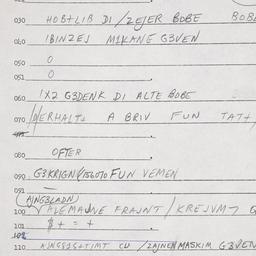 030 HOB+LIB DI / ZEJER BOBE BOBE
040 IBINZEJ MIKANE G3VEN
050 0
051 0
060 1X2 G3DENK DI ALTE BOBE
070 A BRIV FUN TAT+
080 OFTER
090 G3KRIGN FUN VEMEN
091
(AJNGSLADN)
100 ALEMAJNE FRAJNT / KREJVM7
101 $ + = +
102
110 CU / ZAJNEN MASKIM G3VEN